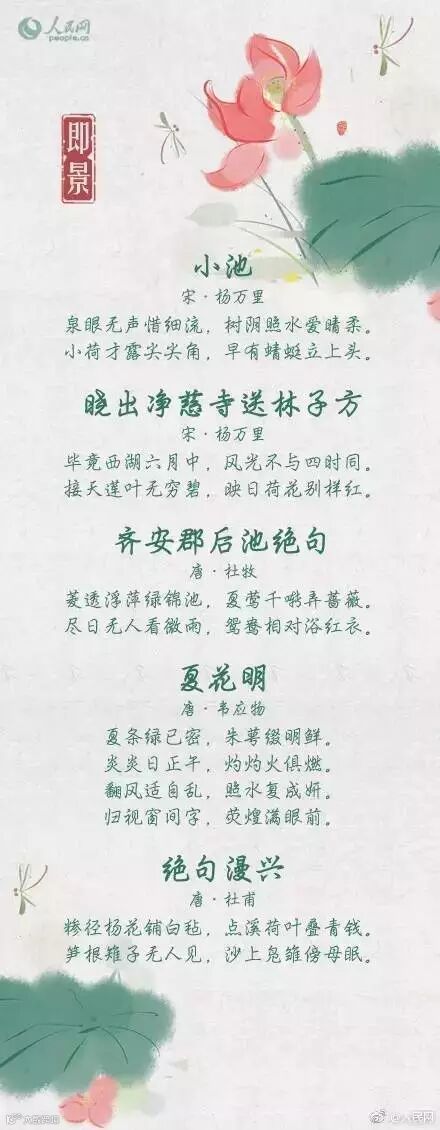 人民网
people.cn
即景
小池
宋·杨万里
泉眼无声惜细流，树阴照水爱晴柔。
小荷才露尖尖角，早有蜻蜓立上头。
晓出净慈寺送林子方
宋·杨万里
毕竟西湖六月中，风光不与四时同。
接天莲叶无穷碧，映日荷花别样红。
齐安郡后池绝句
唐·杜牧
菱透浮萍绿锦池，夏莺千啭弄蔷薇。
尽日无人看微雨，鸳鸯相对浴红衣。
夏花明
唐·韦应物
夏条绿已密，朱萼缀明鲜。
炎炎日正午，灼灼火俱燃。
翻风适自乱，照水复成妍。
归视窗间字，荧煌满眼前。
绝句漫兴
唐·杜甫
糁径杨花铺白毡，点溪荷叶叠青钱。
笋根雉子无人见，沙上凫雏傍母眠。
@人民网